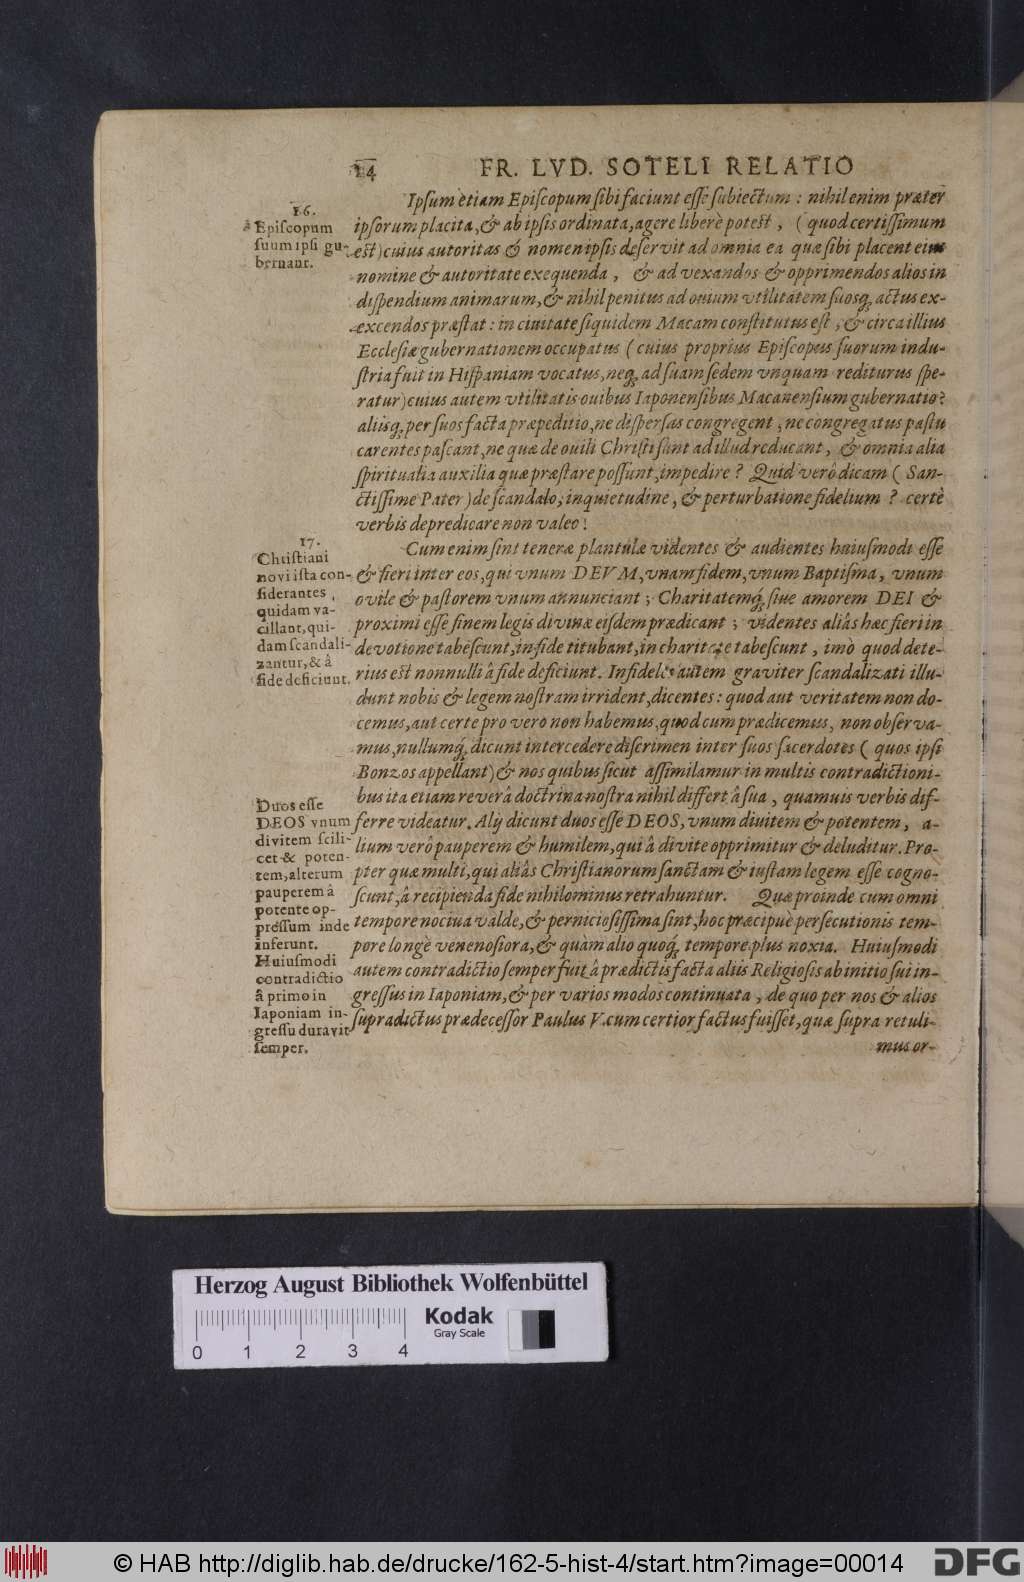 14 FR. LVD. SOTELI RELATIO
Ipsum etiam Episcopum sibi faciunt esse subiectum : nihil enim præter
ipsorum placita, & ab ipsis ordinata, agere liberè potest , ( quod certissimum
est) cuius autoritas & nomen ipsis deservit ad omnia ea quæ sibi placent eius
nomine & autoritate exequenda , & ad vexandos & opprimendos alios in
dispendium animarum, & nihil penitus ad ovium vtilitatem suosq; actus ex-
excendos præstat : in ciuitate siquidem Macam constitutus est , & circa illius
Ecclesiæ gubernationem occupatus ( cuius proprius Episcopus suorum indu-
stria fuit in Hispaniam vocatus, neq; ad suam sedem vnquam rediturus spe-
ratur) cuius autem vtilitatis ouibus Iaponensibus Macanensium gubernatio?
aliisq; per suos facta præpeditio, ne dispersas congregent , ne congregatus pastu
carentes pascant, ne quæ de ovili Christi sunt ad illud reducant , & omnia alia
spiritualia auxilia quæ præstare possunt, impedire ? Quid verò dicam ( San-
ctissime Pater ) de scandalo, inquietudine , & perturbatione fidelium ? certè
verbis depredicare non valeo !
Cum enim sint teneræ plantulæ videntes & audientes huiusmodi esse
& fieri inter eos, qui vnum DEVM, vnam fidem, vnum Baptisma , vnum
ovile & pastorem vnum annunciant ; Charitatemq; siue amorem DEI &
proximi esse finem legis divinæ eisdem prædicant ; videntes aliâs hæc fieri in
devotione tabescunt, in fide titubant, in charitate tabescunt , imò quod dete-
rius est nonnulli â fide deficiunt. Infideles autem graviter scandalizati illu-
dunt nobis & legem nostram irrident, dicentes : quod aut veritatem non do-
cemus, aut certe pro vero non habemus, quod cum prædicemus, non observa-
mus, nullumq; dicunt intercedere discrimen inter suos sacerdotes ( quos ipsi
Bonzos appellant) & nos quibus sicut assimilamur in multis contradictioni-
bus ita etiam reverâ doctrina nostra nihil differt â sua , quamuis verbis dif-
ferre videatur. Alij dicunt duos esse DEOS, vnum diuitem & potentem, a-
lium verò pauperem & humilem, qui â divite opprimitur & deluditur. Pro-
pter quæ multi, qui aliâs Christianorum sanctam & iustam legem esse cogno-
scunt, â recipienda fide nihilominus retrahuntur. Quæ proinde cum omni
tempore nociua valde, & perniciosissima sint, hoc præcipuè persecutionis tem-
pore longè venenosiora, & quàm alio quoq; tempore plus noxia. Huiusmodi
autem contradictio semper fuit â prædictis facta aliis Religiosis ab initio sui in-
gressus in Iaponiam, & per varios modos continuata , de quo per nos & alios
supradictus prædecessor Paulus V. cum certior factus fuisset, quæ supra retuli-
mus or-
16.
Episcopum
suum ipsi gu-
bernant.
17.
Christiani
novi ista con-
siderantes ,
quidam va-
cillant, qui-
dam scandali-
zantur, & â
fide deficiunt.
Duos esse
DEOS vnum
divitem scili-
cet & poten-
tem, alterum
pauperem â
potente op-
pressum inde
inferunt.
Huiusmodi
contradictio
â primo in
Iaponiam in-
gressu duravit
semper.
Herzog August Bibliothek Wolfenbüttel
Kodak
Gray Scale
0 1 2 3 4
© HAB http://diglib.hab.de/drucke/162-5-hist-4/start.htm?image=00014
DFG